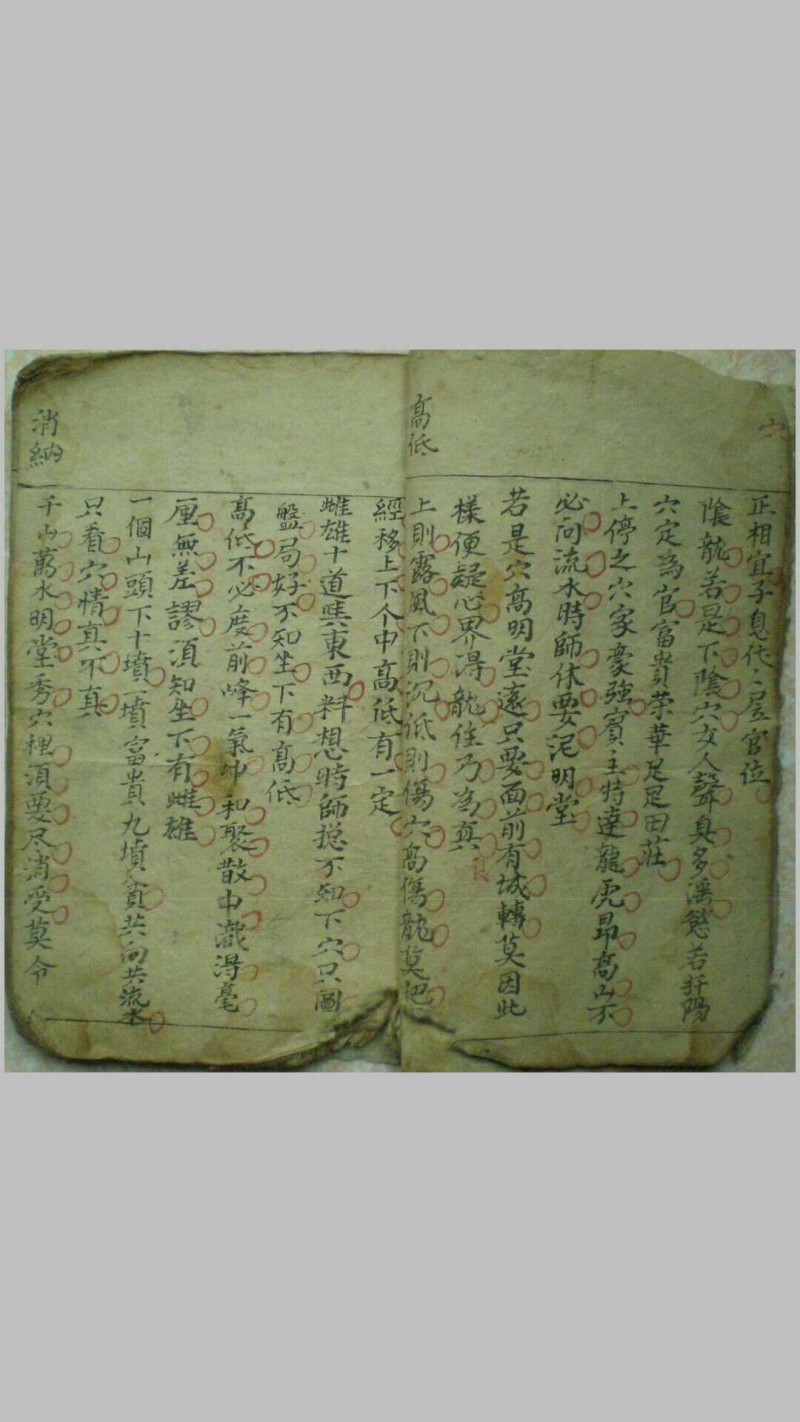 穴
正相宜子息代々居官位
陰龍若是下陰穴女人聲臭多滛慾若扦陽
穴定為官富貴荣華足足田莊
上停之穴家豪強賓主特達龍虎昂高山不
必向流水時師休要泥明堂
若是穴高明堂遠只要面前有城轉莫因此
樣便疑心界淂龍住乃為真
高低
上則露風下則沉低則傷穴高傷龍莫把
經移上下个中高低有一定
雌雄十道與東西料想時師搃不知下穴只圖
盤局好不知坐下有高低
高低不必度前峰一氣冲和聚散中藏淂毫
厘無差謬須知坐下有雌雄
一個山頭下十墳一墳富貴九墳貧共向共流水
只看穴情真不真
消納
千山萬水明堂秀穴裡須要尽消受莫令